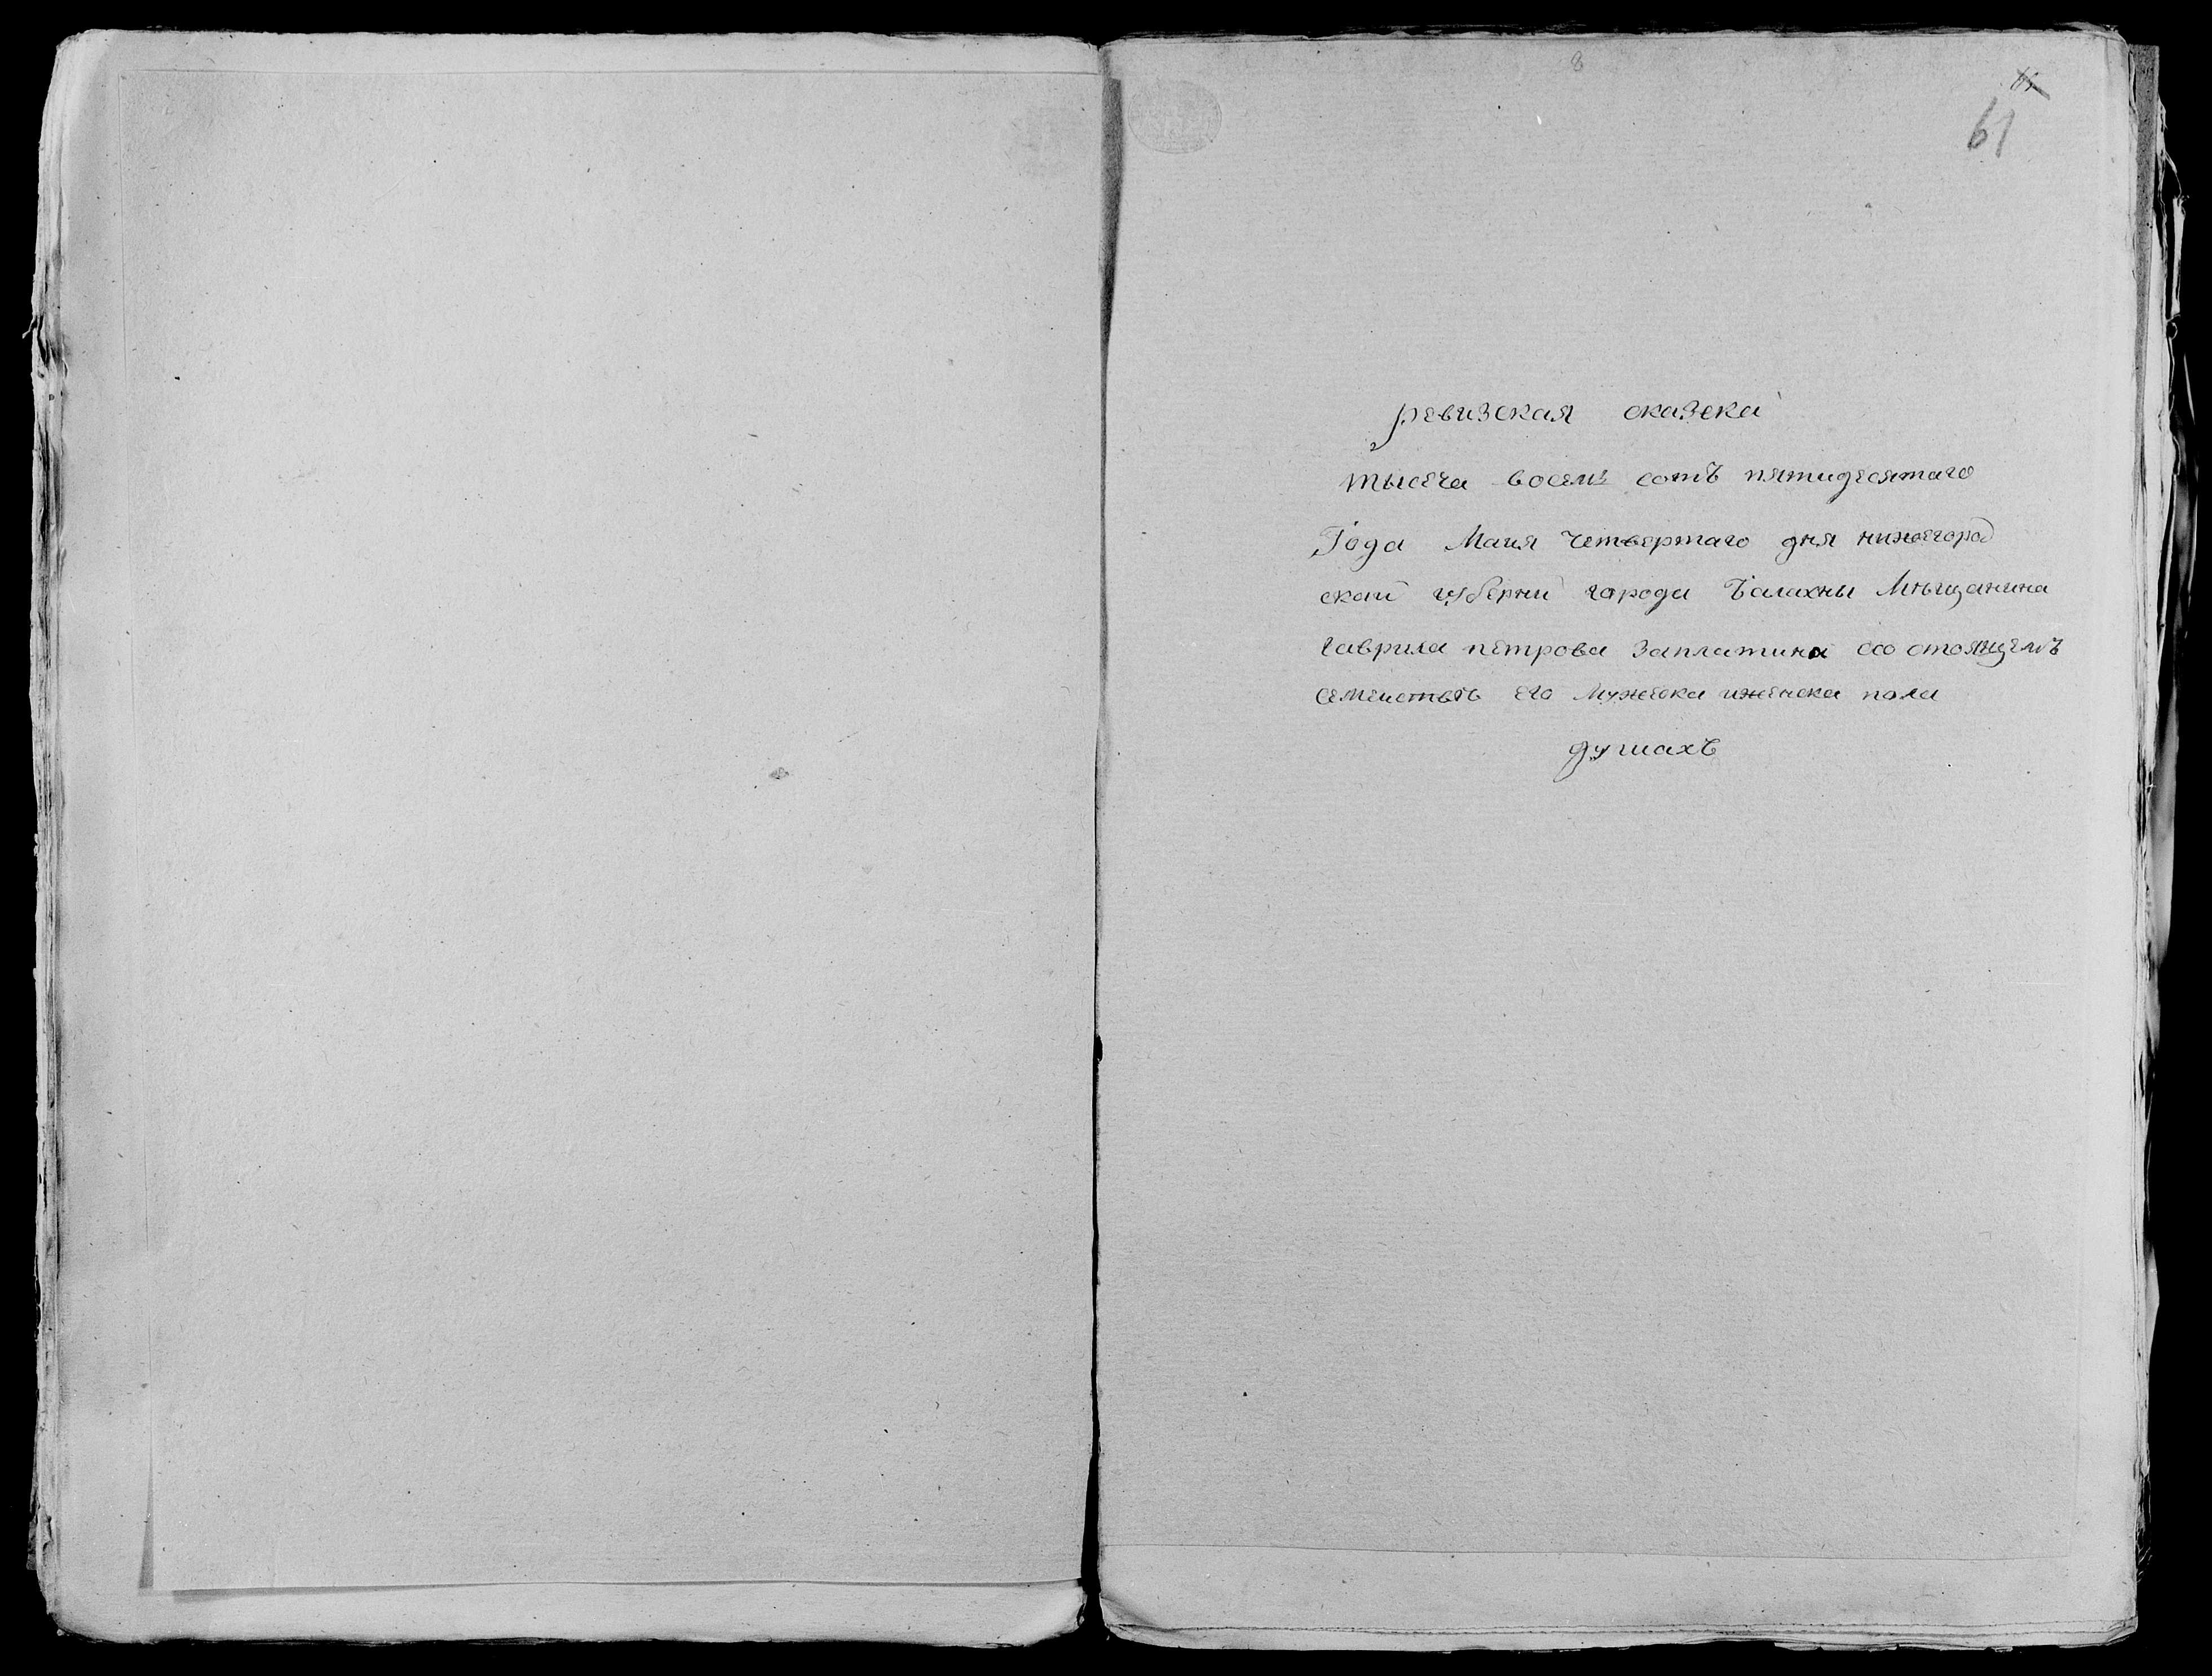 8
61
ревизская сказска
тысеча восемь сотъ пятидесятаго
Года Маия четвертаго дня нижегород
ской губернии города Балахны Мнещанина
гаврила петрова заплатина со стоящемъ
семеистве его мужеска иженска пола
душахъ